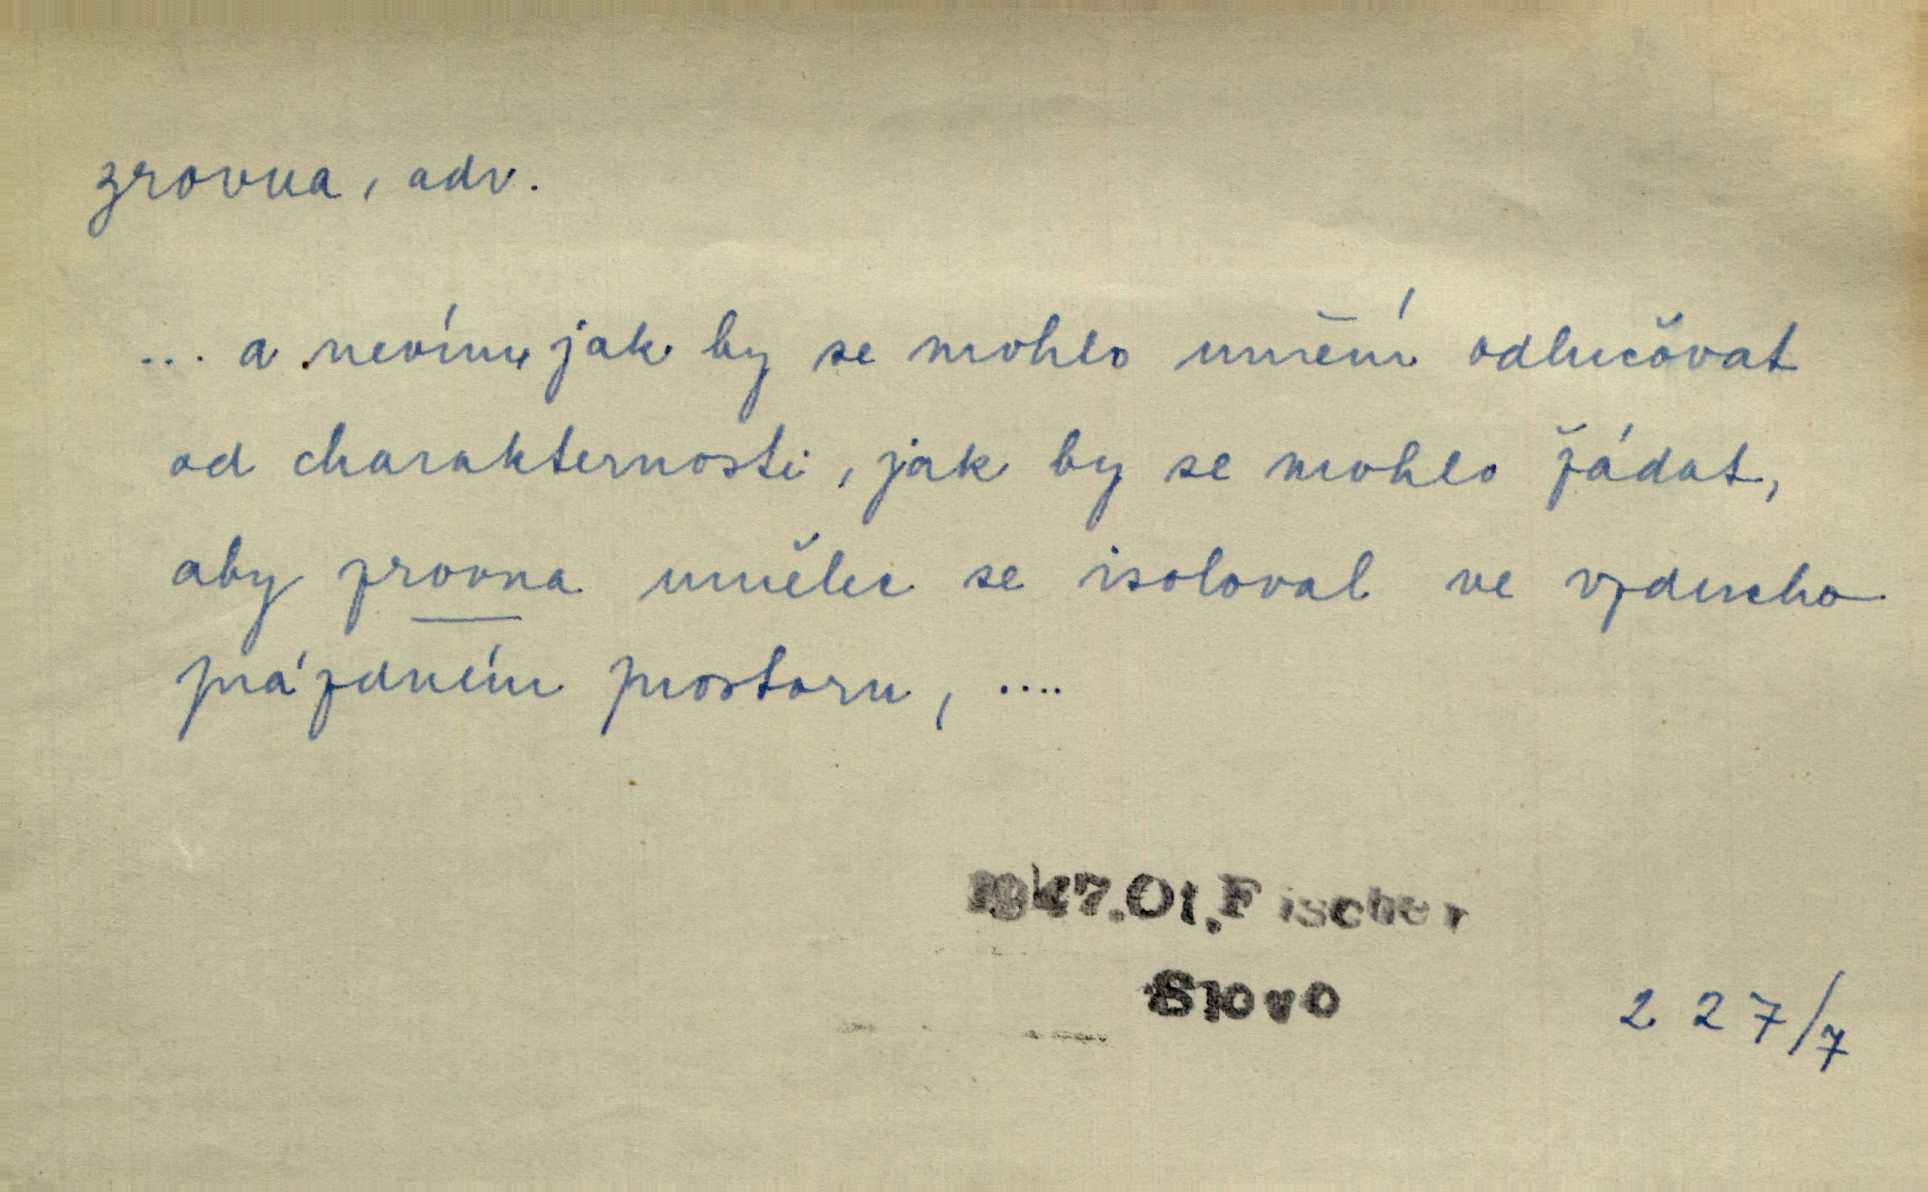 zrovna, adv.
... a nevím, jak by se mohlo umění odlučovat
od charakternosti, jak by se mohlo žádat,
aby zrovna umělec se isoloval ve vzducho
prázdném prostoru, ....
1947.Ot.Fischer
Slovo
227/7